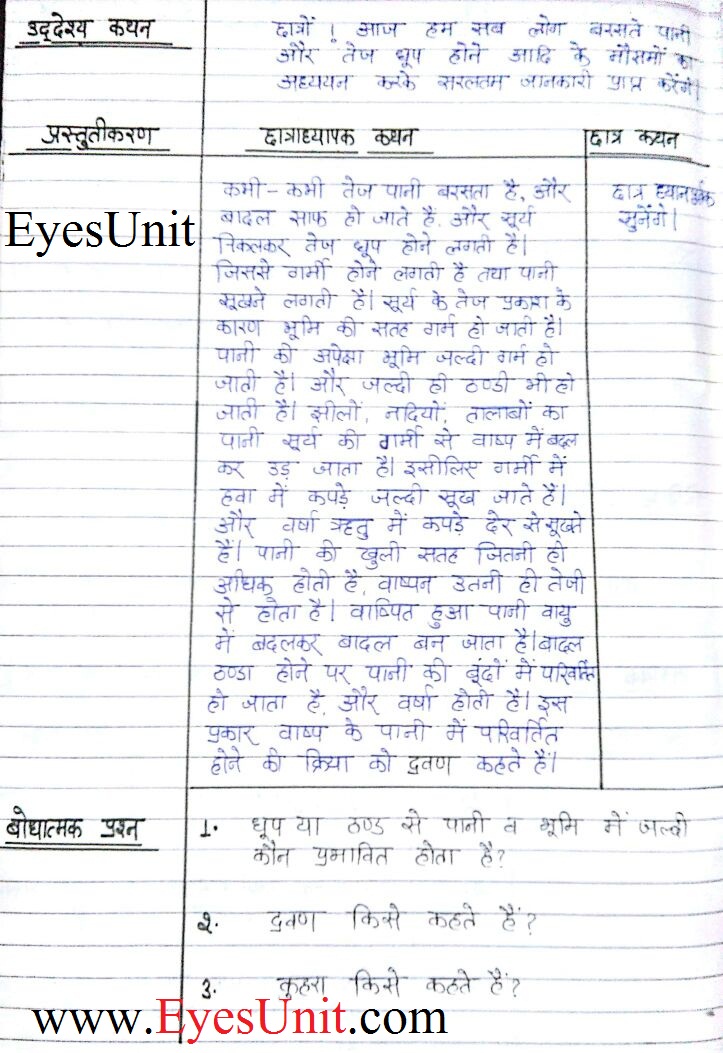 उद्देश्य कथन
छात्रों ! आज हम सब लोग बरसते पानी
और तेज धूप होने आदि के मौसमों का
अध्ययन करके सरलतम जानकारी प्राप्त करेंगे।
प्रस्तुतीकरण
छात्राध्यापक कथन
छात्र कथन
कभी-कभी तेज पानी बरसता है, और
बादल साफ हो जाते है, और सूर्य
निकलकर तेज धूप होने लगती है।
जिससे गर्मी होने लगती है तथा पानी
सूखने लगती है। सूर्य के तेज प्रकाश के
कारण भूमि की सतह गर्म हो जाती है।
पानी की अपेक्षा भूमि जल्दी गर्म हो
जाती है। और जल्दी ही ठण्डी भी हो
जाती है। झीलों, नदियों, तालाबों का
पानी सूर्य की गर्मी से वाष्प में बदल
कर उड़ जाता है। इसीलिए गर्मी में
हवा में कपड़े जल्दी सूख जाते है।
और वर्षा ऋतु में कपड़े देर से सूखते
हैं। पानी की खुली सतह जितनी ही
अधिक होती है, वाष्पन उतनी ही तेजी
से होता है। वाष्पित हुआ पानी वायु
में बदलकर बादल बन जाता है। बादल
ठण्डा होने पर पानी की बूंदों में परिवर्तित
हो जाता है, और वर्षा होती है। इस
प्रकार वाष्प के पानी में परिवर्तित
होने की क्रिया को द्रवण कहते हैं।
छात्र ध्यानपूर्वक
सुनेंगे।
EyesUnit
बोधात्मक प्रश्न
1. धूप या ठण्ड से पानी व भूमि में जल्दी
कौन प्रभावित होता है?
2. द्रवण किसे कहते हैं?
3. कुहरा किसे कहते हैं?
www.EyesUnit.com